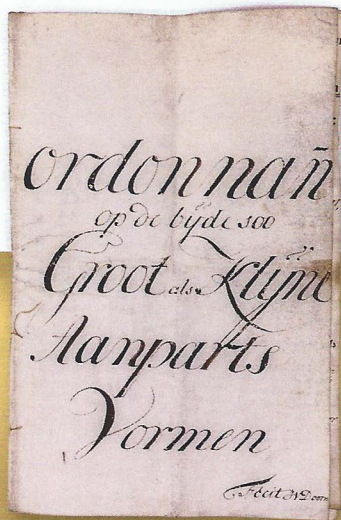 ordonnañ
op de bÿde soo
Groot als Klÿne
Aanparts
Vormen
Fecit